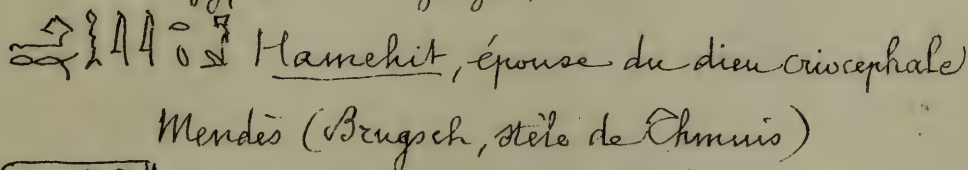 Hamehit, épouse du dieu criocephale
Mendès (Brugsch, stèle de Thmuis)